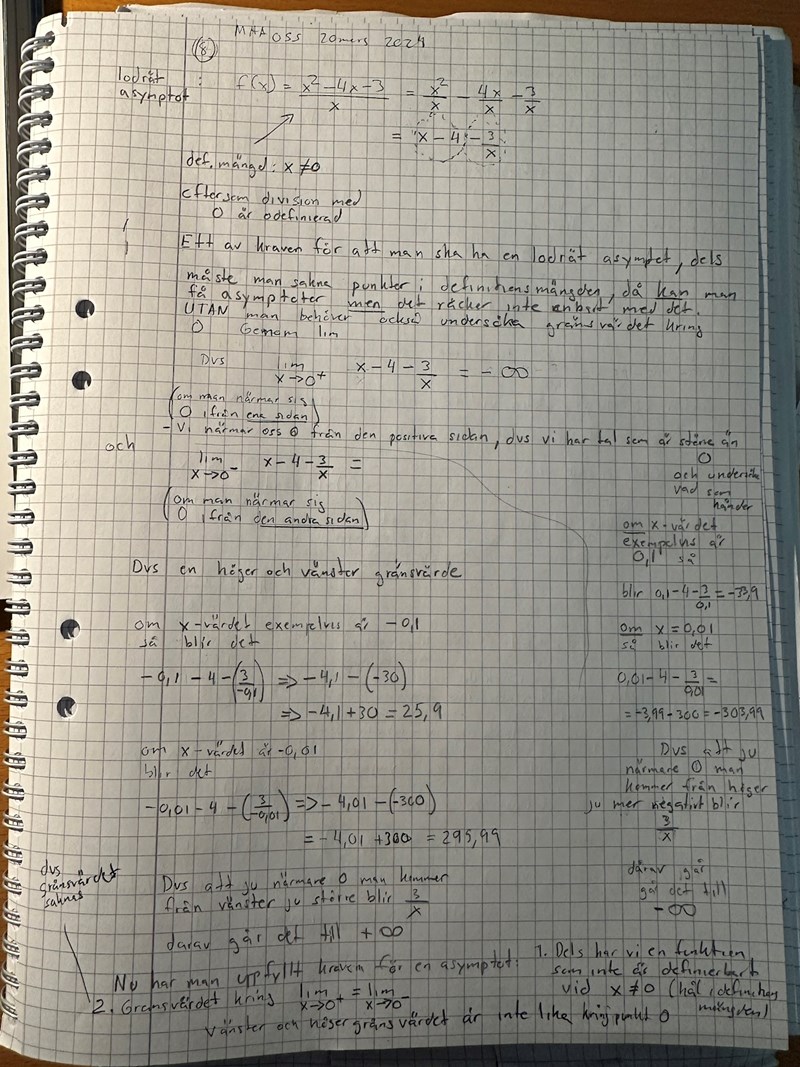 MAA OSS 20 mars 2024
(8)
lodrät asymptot : f(x) = x² - 4x - 3 / x = x²/x - 4x/x - 3/x
= x - 4 - 3/x
def. mängd: x ≠ 0
eftersom division med
0 är odefinierad
Ett av kraven för att man ska ha en lodrät asymptot, dels
måste man sakna punkter i definitionsmängden, då kan man
få asymptoter men det räcker inte enbart med det.
UTAN man behöver också undersöka gränsvärdet kring
0 Genom lim
Dvs lim x→0⁺ x - 4 - 3/x = -∞
(om man närmar sig
0 ifrån ena sidan)
- Vi närmar oss 0 från den positiva sidan, dvs vi har tal som är större än
0
och undersöka
vad som
händer
och lim x→0⁻ x - 4 - 3/x =
(om man närmar sig
0 ifrån den andra sidan)
om x-värdet
exempelvis är
0,1 så
blir 0,1 - 4 - 3/0,1 = -33,9
om x = 0,01
så blir det
0,01 - 4 - 3/0,01 =
= -3,99 - 300 = -303,99
Dvs att ju
närmare 0 man
kommer från höger
ju mer negativt blir
3/x
därav går
går det till
-∞
Dvs en höger och vänster gränsvärde
om x-värdet exempelvis är -0,1
så blir det
-0,1 - 4 - (3/-0,1) => -4,1 - (-30)
=> -4,1 + 30 = 25,9
om x-värdet är -0,01
blir det
-0,01 - 4 - (3/-0,01) => -4,01 - (-300)
= -4,01 + 300 = 295,99
dvs
gränsvärdet
saknas
Dvs att ju närmare 0 man kommer
från vänster ju större blir 3/x
därav går det till +∞
Nu har man uppfyllt kraven för en asymptot: 1. Dels har vi en funktion
som inte är definierbart
vid x ≠ 0 (hål i definitions
mängden)
2. Gränsvärdet kring lim x→0⁺ = lim x→0⁻
Vänster och höger gränsvärdet är inte lika kring punkt 0